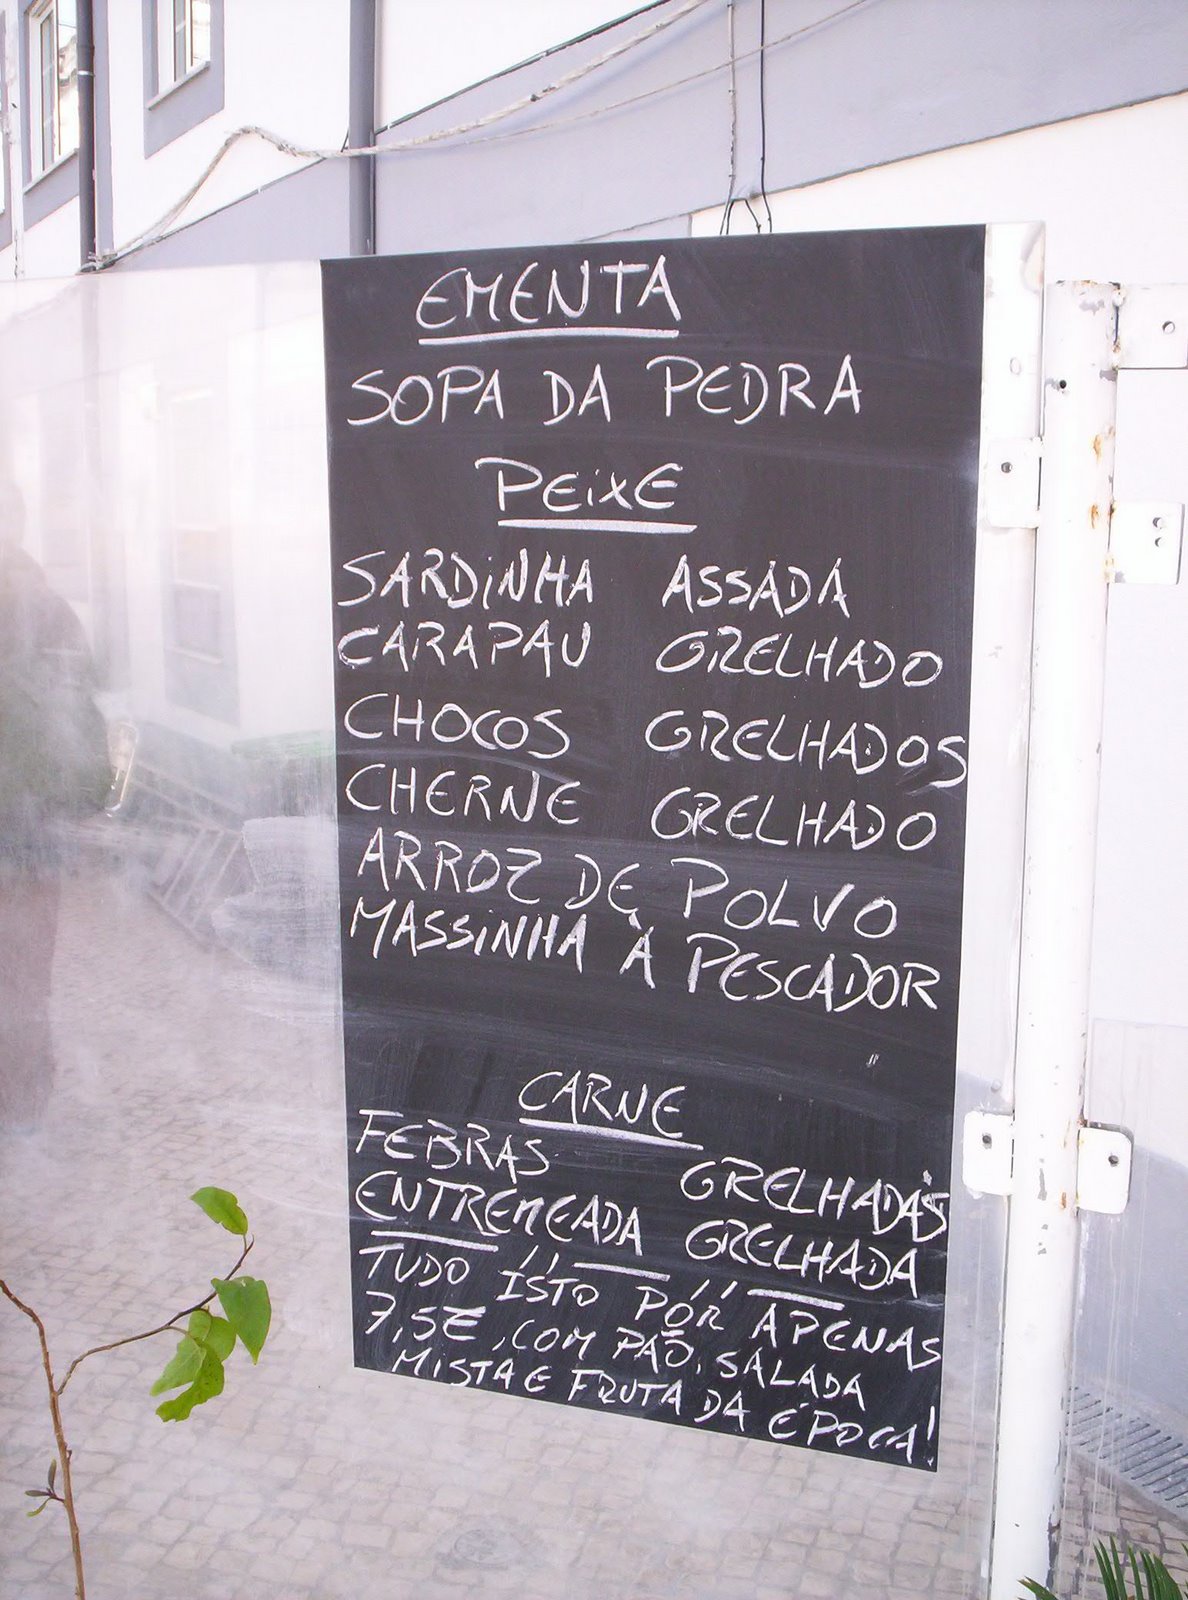 EMENTA
SOPA DA PEDRA
PEIXE
SARDINHA ASSADA
CARAPAU GRELHADO
CHOCOS GRELHADOS
CHERNE GRELHADO
ARROZ DE POLVO
MASSINHA À PESCADOR
CARNE
FEBRAS GRELHADAS
ENTREMEADA GRELHADA
TUDO ISTO POR APENAS
7,5€, COM PÃO, SALADA
MISTA E FRUTA DA ÉPOCA!